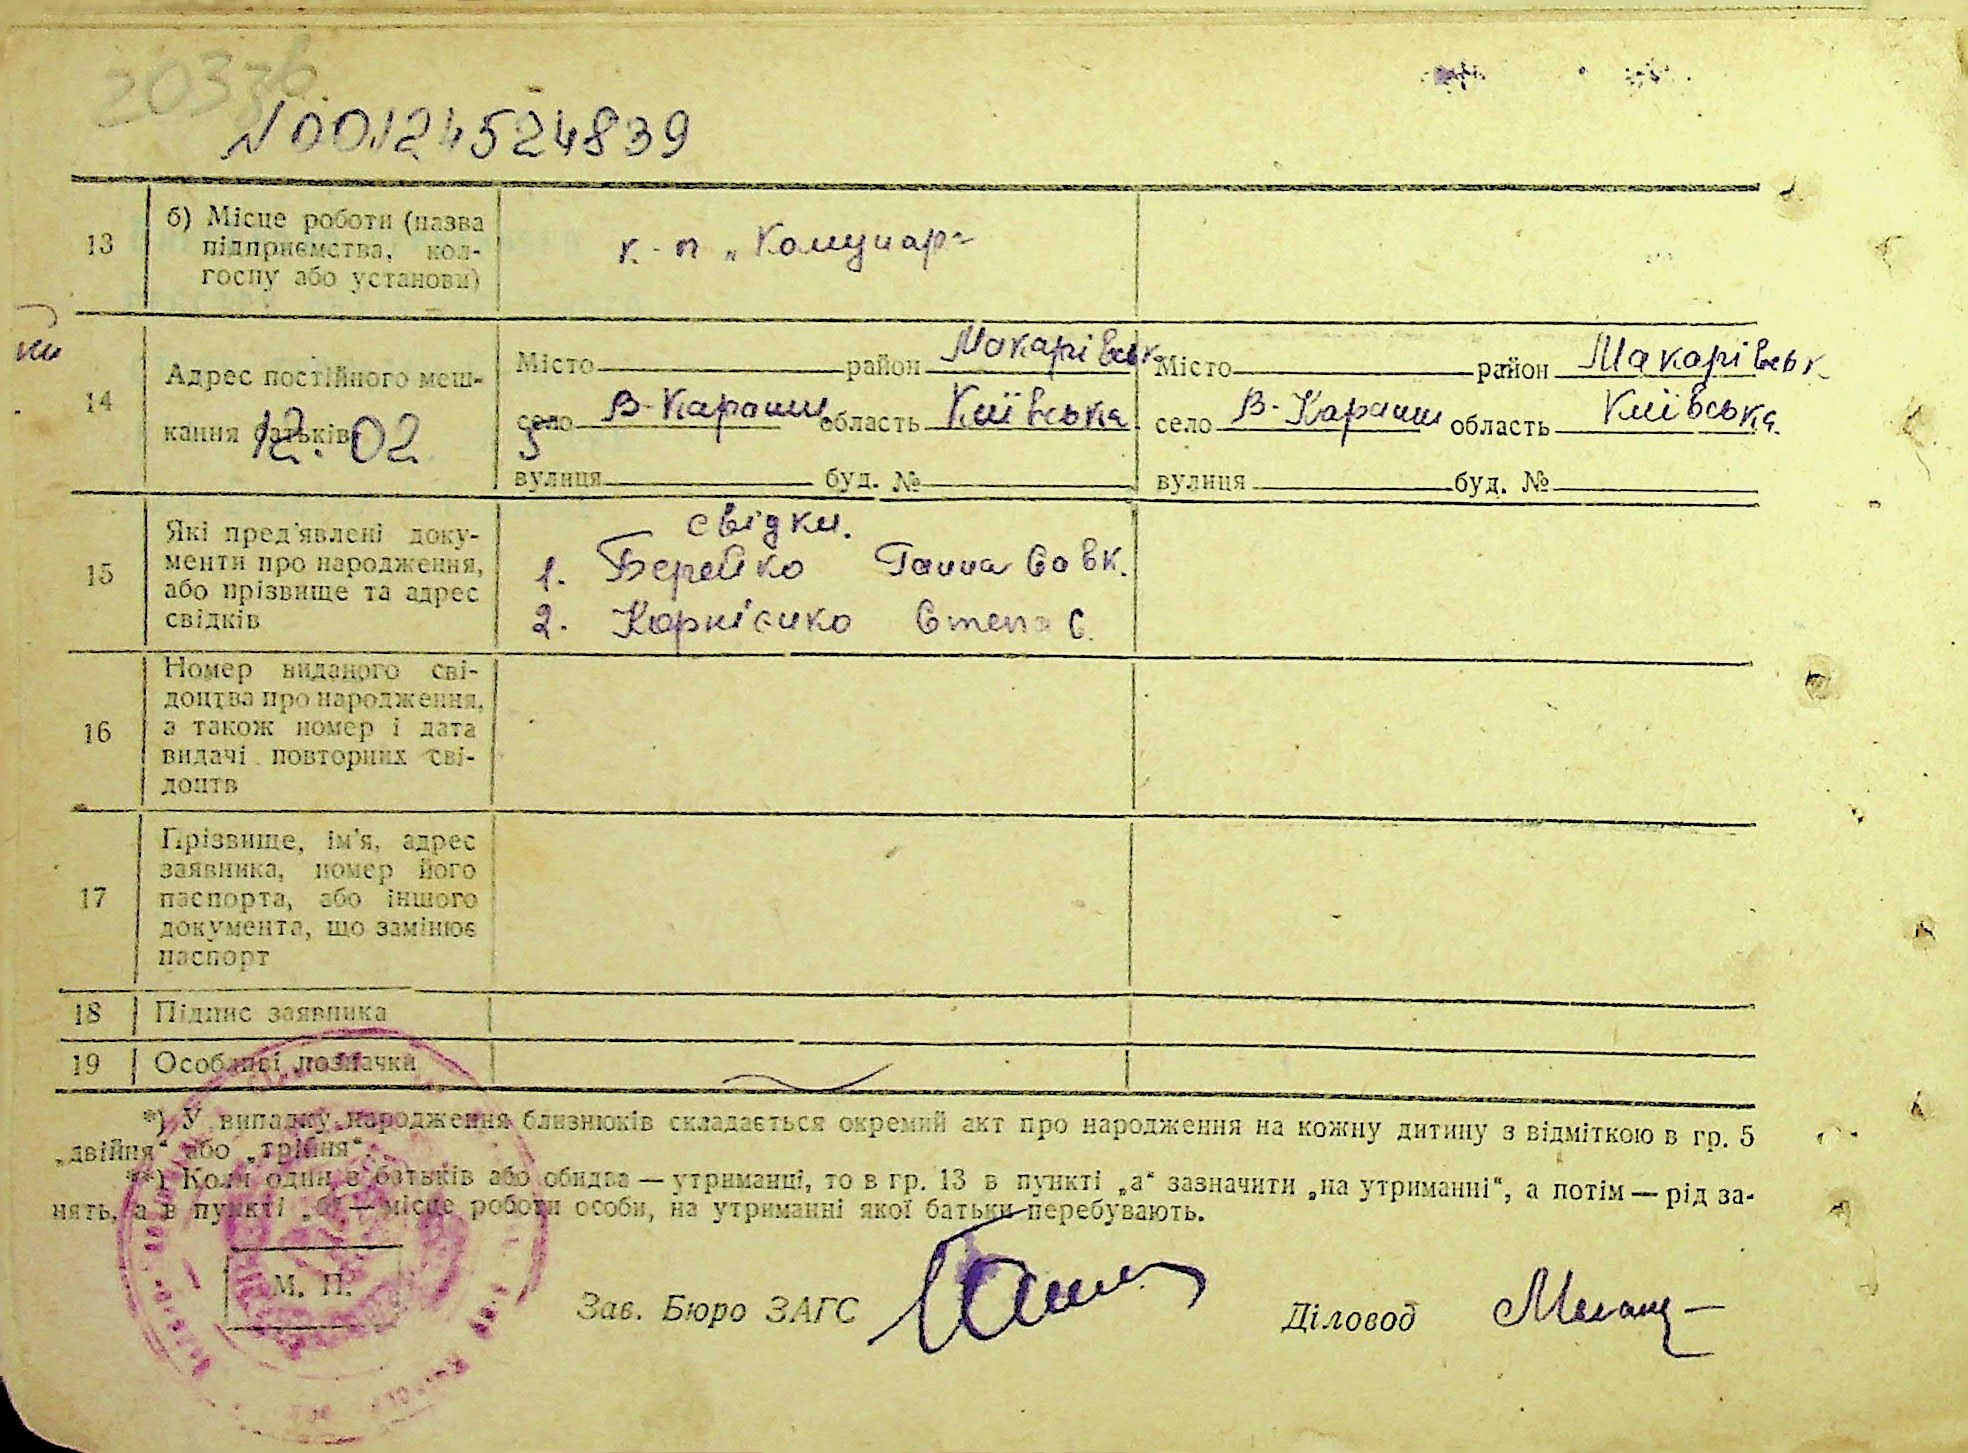 20336
N 00124524839
13 б) Місце роботи (назва
підприємства, кол-
госпу або установи)
к-п „Комунар"
14 Адрес постійного меш-
кання батьків
12.02
Місто район Макарівськ.
село В-Караши область Київська
вулиця буд. №
Місто район Макарівськ.
село В-Караши область Київська
вулиця буд. №
15 Які пред'явлені доку-
менти про народження,
або прізвище та адрес
свідків
свідки.
1. Берейко Ганна Савк.
2. Корнієнко Степа С.
16 Номер виданого сві-
доцтва про народження,
а також номер і дата
видачі повторних сві-
доцтв
17 Прізвище, ім'я, адрес
заявника, номер його
паспорта, або іншого
документа, що замінює
паспорт
18 Підпис заявника
19 Особливі позначки
*) У випадку народження близнюків складається окремий акт про народження на кожну дитину з відміткою в гр. 5
„двійня" або „трійня".
**) Коли один з батьків або обидва — утриманці, то в гр. 13 в пункті „а" зазначити „на утриманні", а потім — рід за-
нять, а в пункті „б" — місце роботи особи, на утриманні якої батьки перебувають.
М. П.
Зав. Бюро ЗАГС
Діловод